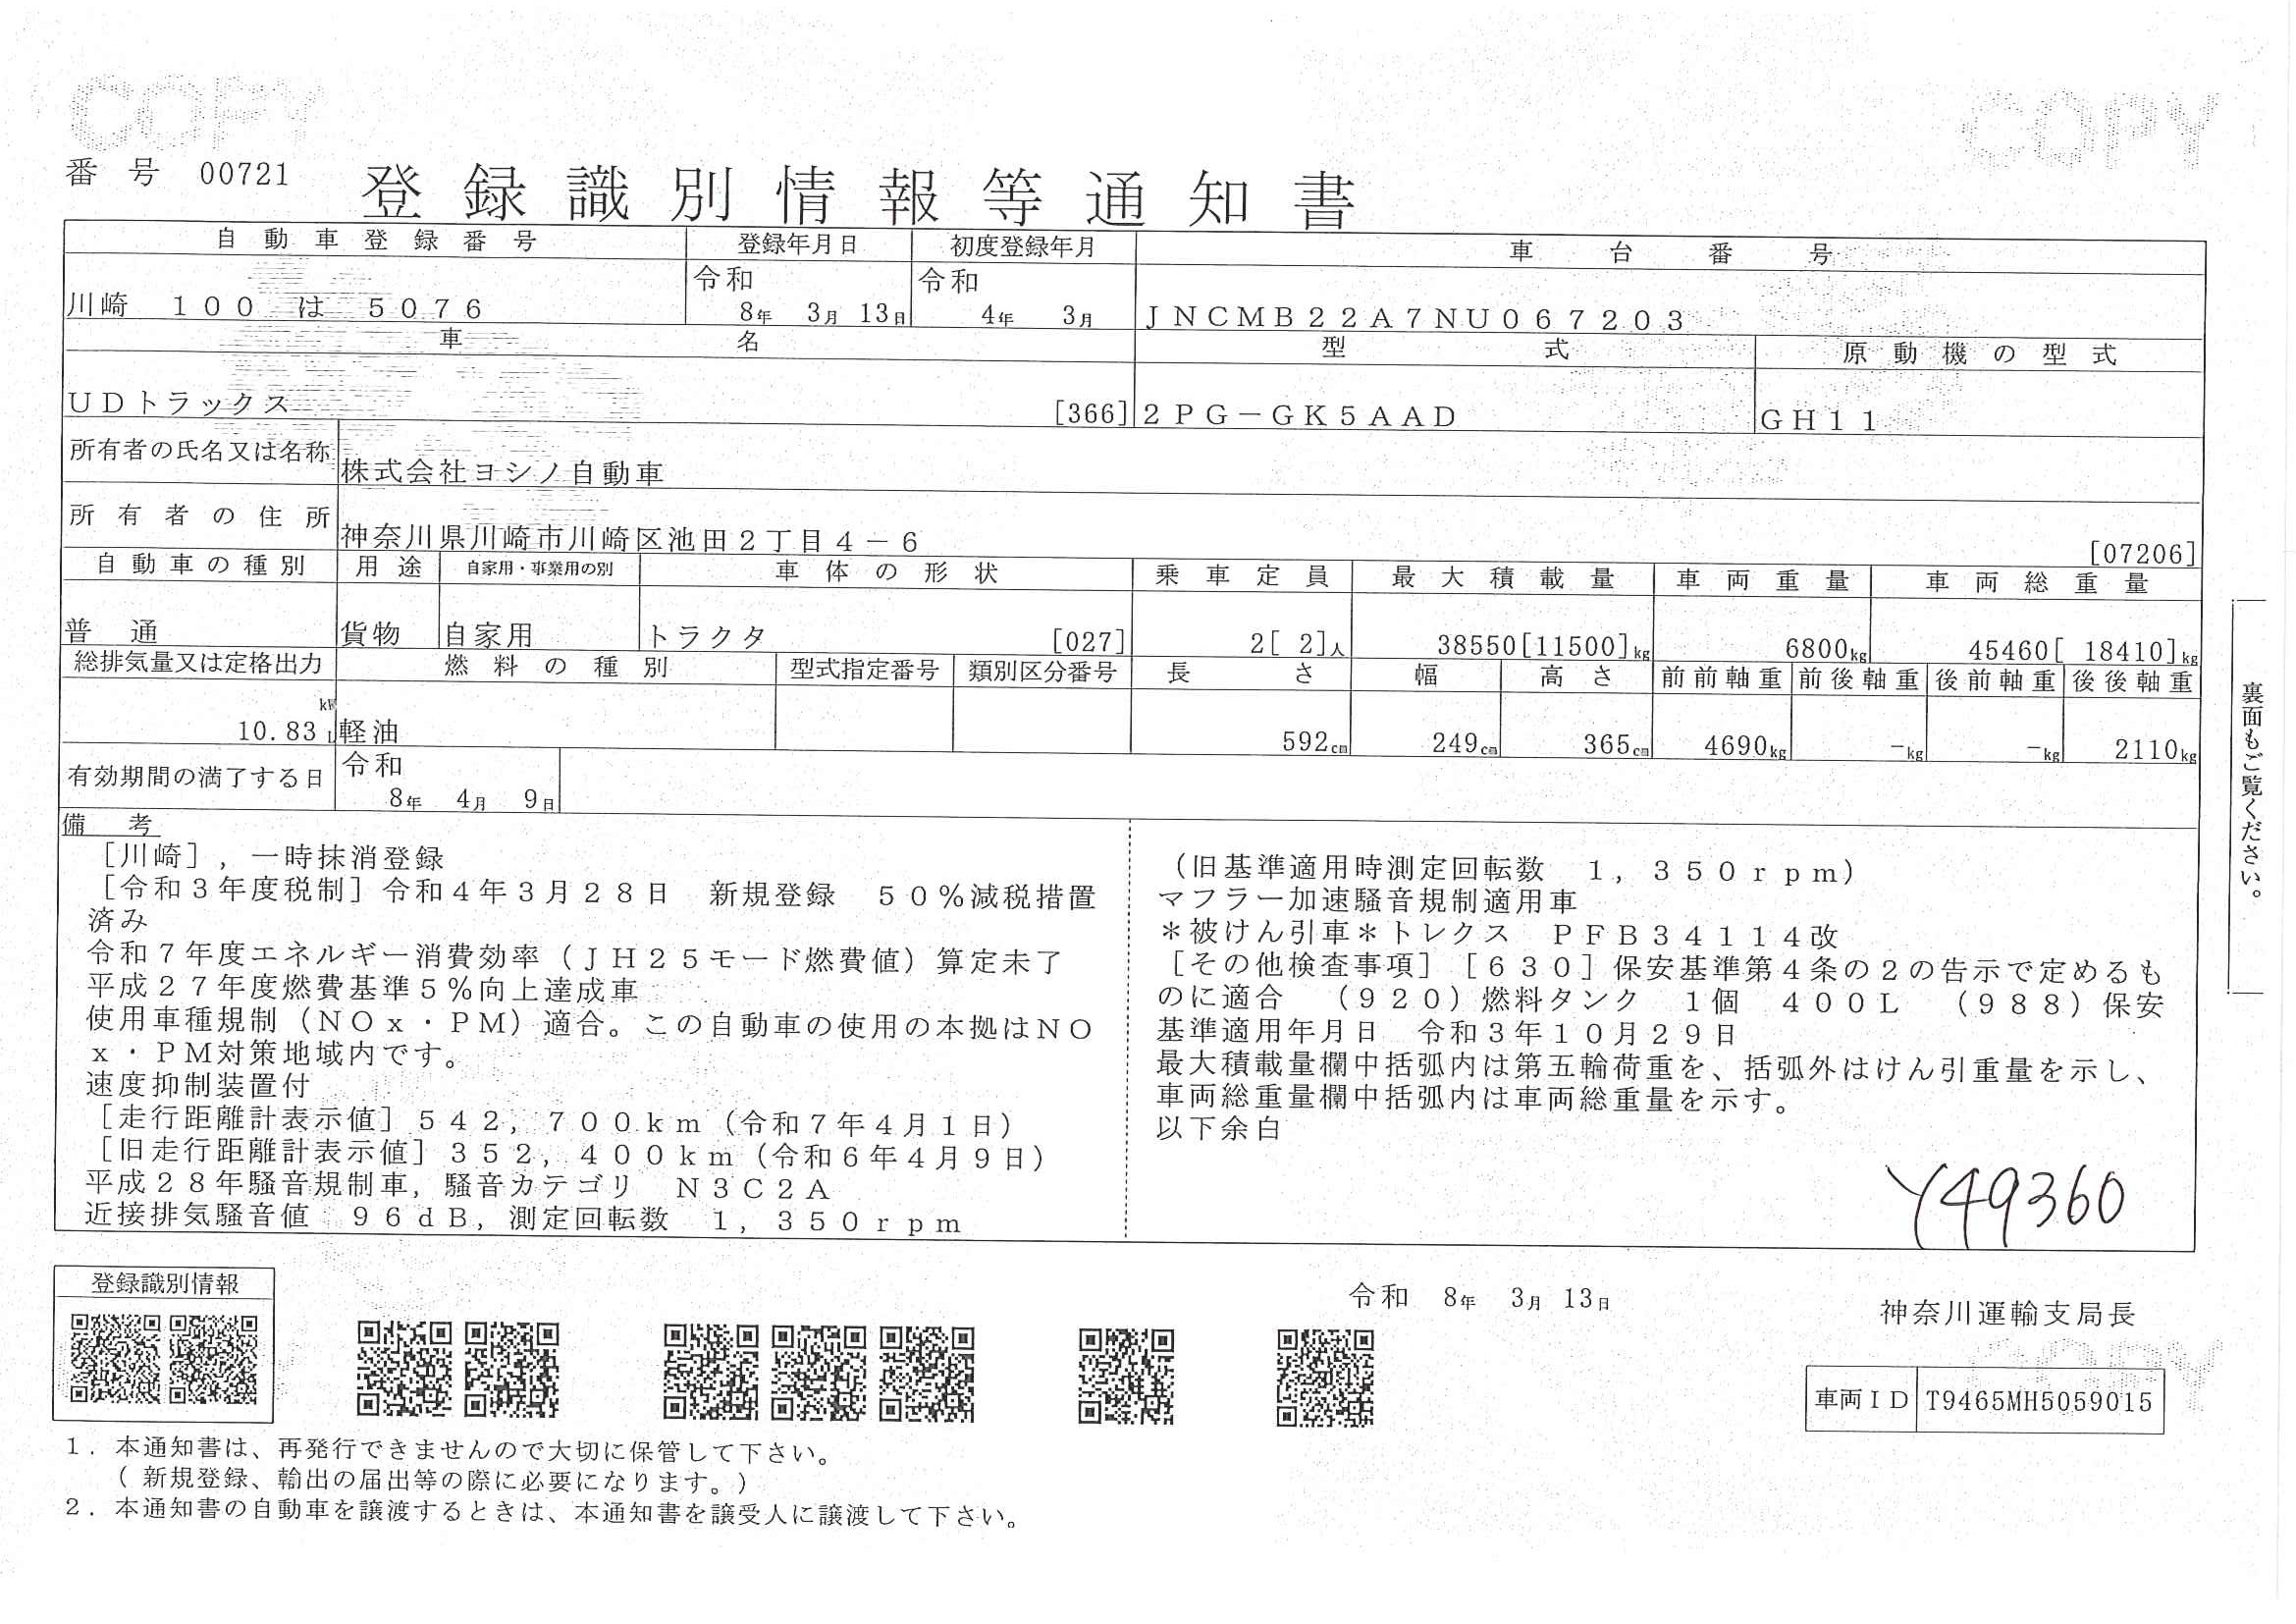 COPY
COPY
番 号 00721 登録識別情報等通知書
自動車登録番号 登録年月日 初度登録年月 車台番号
川崎 100 は 5076 令和 8年 3月 13日 令和 4年 3月 JNCMB22A7NU067203
車名 型式 原動機の型式
UDトラックス [366] 2PG-GK5AAD GH11
所有者の氏名又は名称 株式会社ヨシノ自動車
所有者の住所 神奈川県川崎市川崎区池田2丁目4-6 [07206]
自動車の種別 用途 自家用・事業用の別 車体の形状 乗車定員 最大積載量 車両重量 車両総重量
普通 貨物 自家用 トラクタ [027] 2[ 2]人 38550[11500]kg 6800kg 45460[ 18410]kg
総排気量又は定格出力 燃料の種別 型式指定番号 類別区分番号 長さ 幅 高さ 前前軸重 前後軸重 後前軸重 後後軸重
kW 10.83 L 軽油 592cm 249cm 365cm 4690kg -kg -kg 2110kg
有効期間の満了する日 令和 8年 4月 9日
備考
[川崎],一時抹消登録
[令和3年度税制]令和4年3月28日 新規登録 50%減税措置
済み
令和7年度エネルギー消費効率(JH25モード燃費値)算定未了
平成27年度燃費基準5%向上達成車
使用車種規制(NOx・PM)適合。この自動車の使用の本拠はNO
x・PM対策地域内です。
速度抑制装置付
[走行距離計表示値]542,700km(令和7年4月1日)
[旧走行距離計表示値]352,400km(令和6年4月9日)
平成28年騒音規制車,騒音カテゴリ N3C2A
近接排気騒音値 96dB,測定回転数 1,350rpm
(旧基準適用時測定回転数 1,350rpm)
マフラー加速騒音規制適用車
*被けん引車*トレクス PFB34114改
[その他検査事項][630]保安基準第4条の2の告示で定めるも
のに適合 (920)燃料タンク 1個 400L (988)保安
基準適用年月日 令和3年10月29日
最大積載量欄中括弧内は第五輪荷重を、括弧外はけん引重量を示し、
車両総重量欄中括弧内は車両総重量を示す。
以下余白
Y49360
裏面もご覧ください。
登録識別情報
令和 8年 3月 13日
神奈川運輸支局長
COPY
車両ID T9465MH5059015
1.本通知書は、再発行できませんので大切に保管して下さい。
(新規登録、輸出の届出等の際に必要になります。)
2.本通知書の自動車を譲渡するときは、本通知書を譲受人に譲渡して下さい。